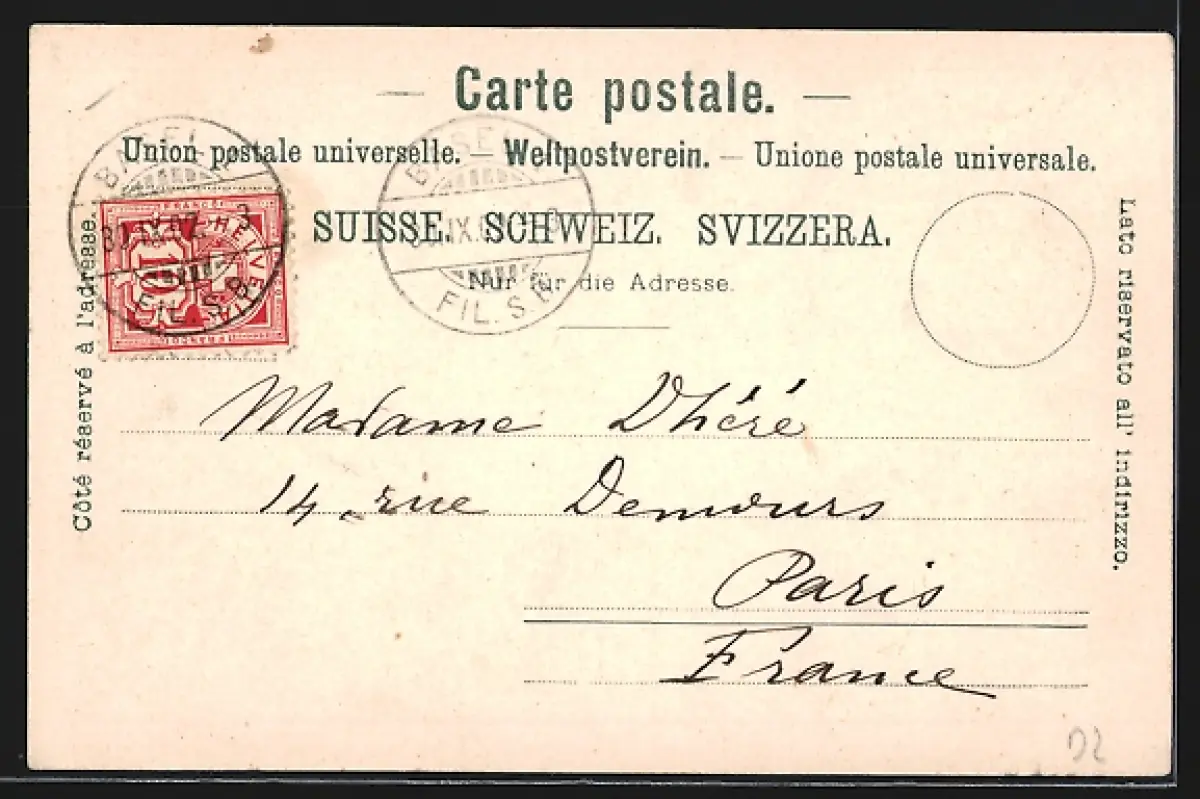 — Carte postale. —
Union postale universelle. — Weltpostverein. — Unione postale universale.
SUISSE. SCHWEIZ. SVIZZERA.
Nur für die Adresse.
Côté réservé à l'adresse.
Lato riservato all' indirizzo.
FRANCO
HELVETIA
10
FRANCO
BASEL
FIL. S.B.
BASEL
FIL. S.B.
Madame Dhéré
14 rue Demours
Paris
France